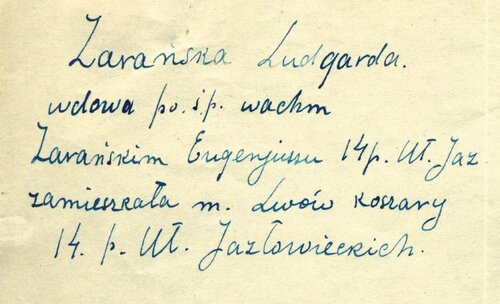 Zarańska Ludgarda.
wdowa po. ś.p. wachm
Zarańskim Eugenjuszu 14 p. Uł. Jaz.
zamieszkała m. Lwów koszary
14. p. Uł. Jazłowieckich.